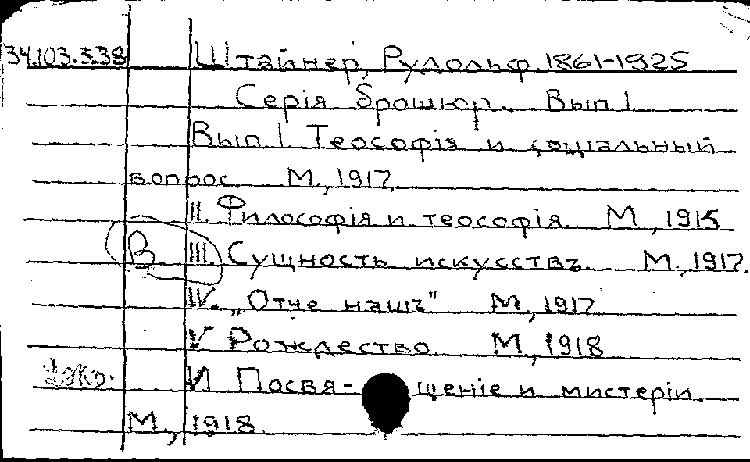 34.103.5.38 Штайнер, Рудольф 1861-1925
Серія брошюр. Вып I
Вып I Теософія и соціальный
вопрос М., 1917
II. Философія и теософія М, 1915
В III. Сущность искусствъ М, 1917.
IV. „Отче нашъ" М, 1917
V Рождество М, 1918
VI Посвя-щеніе и мистеріи.
М, 1918.